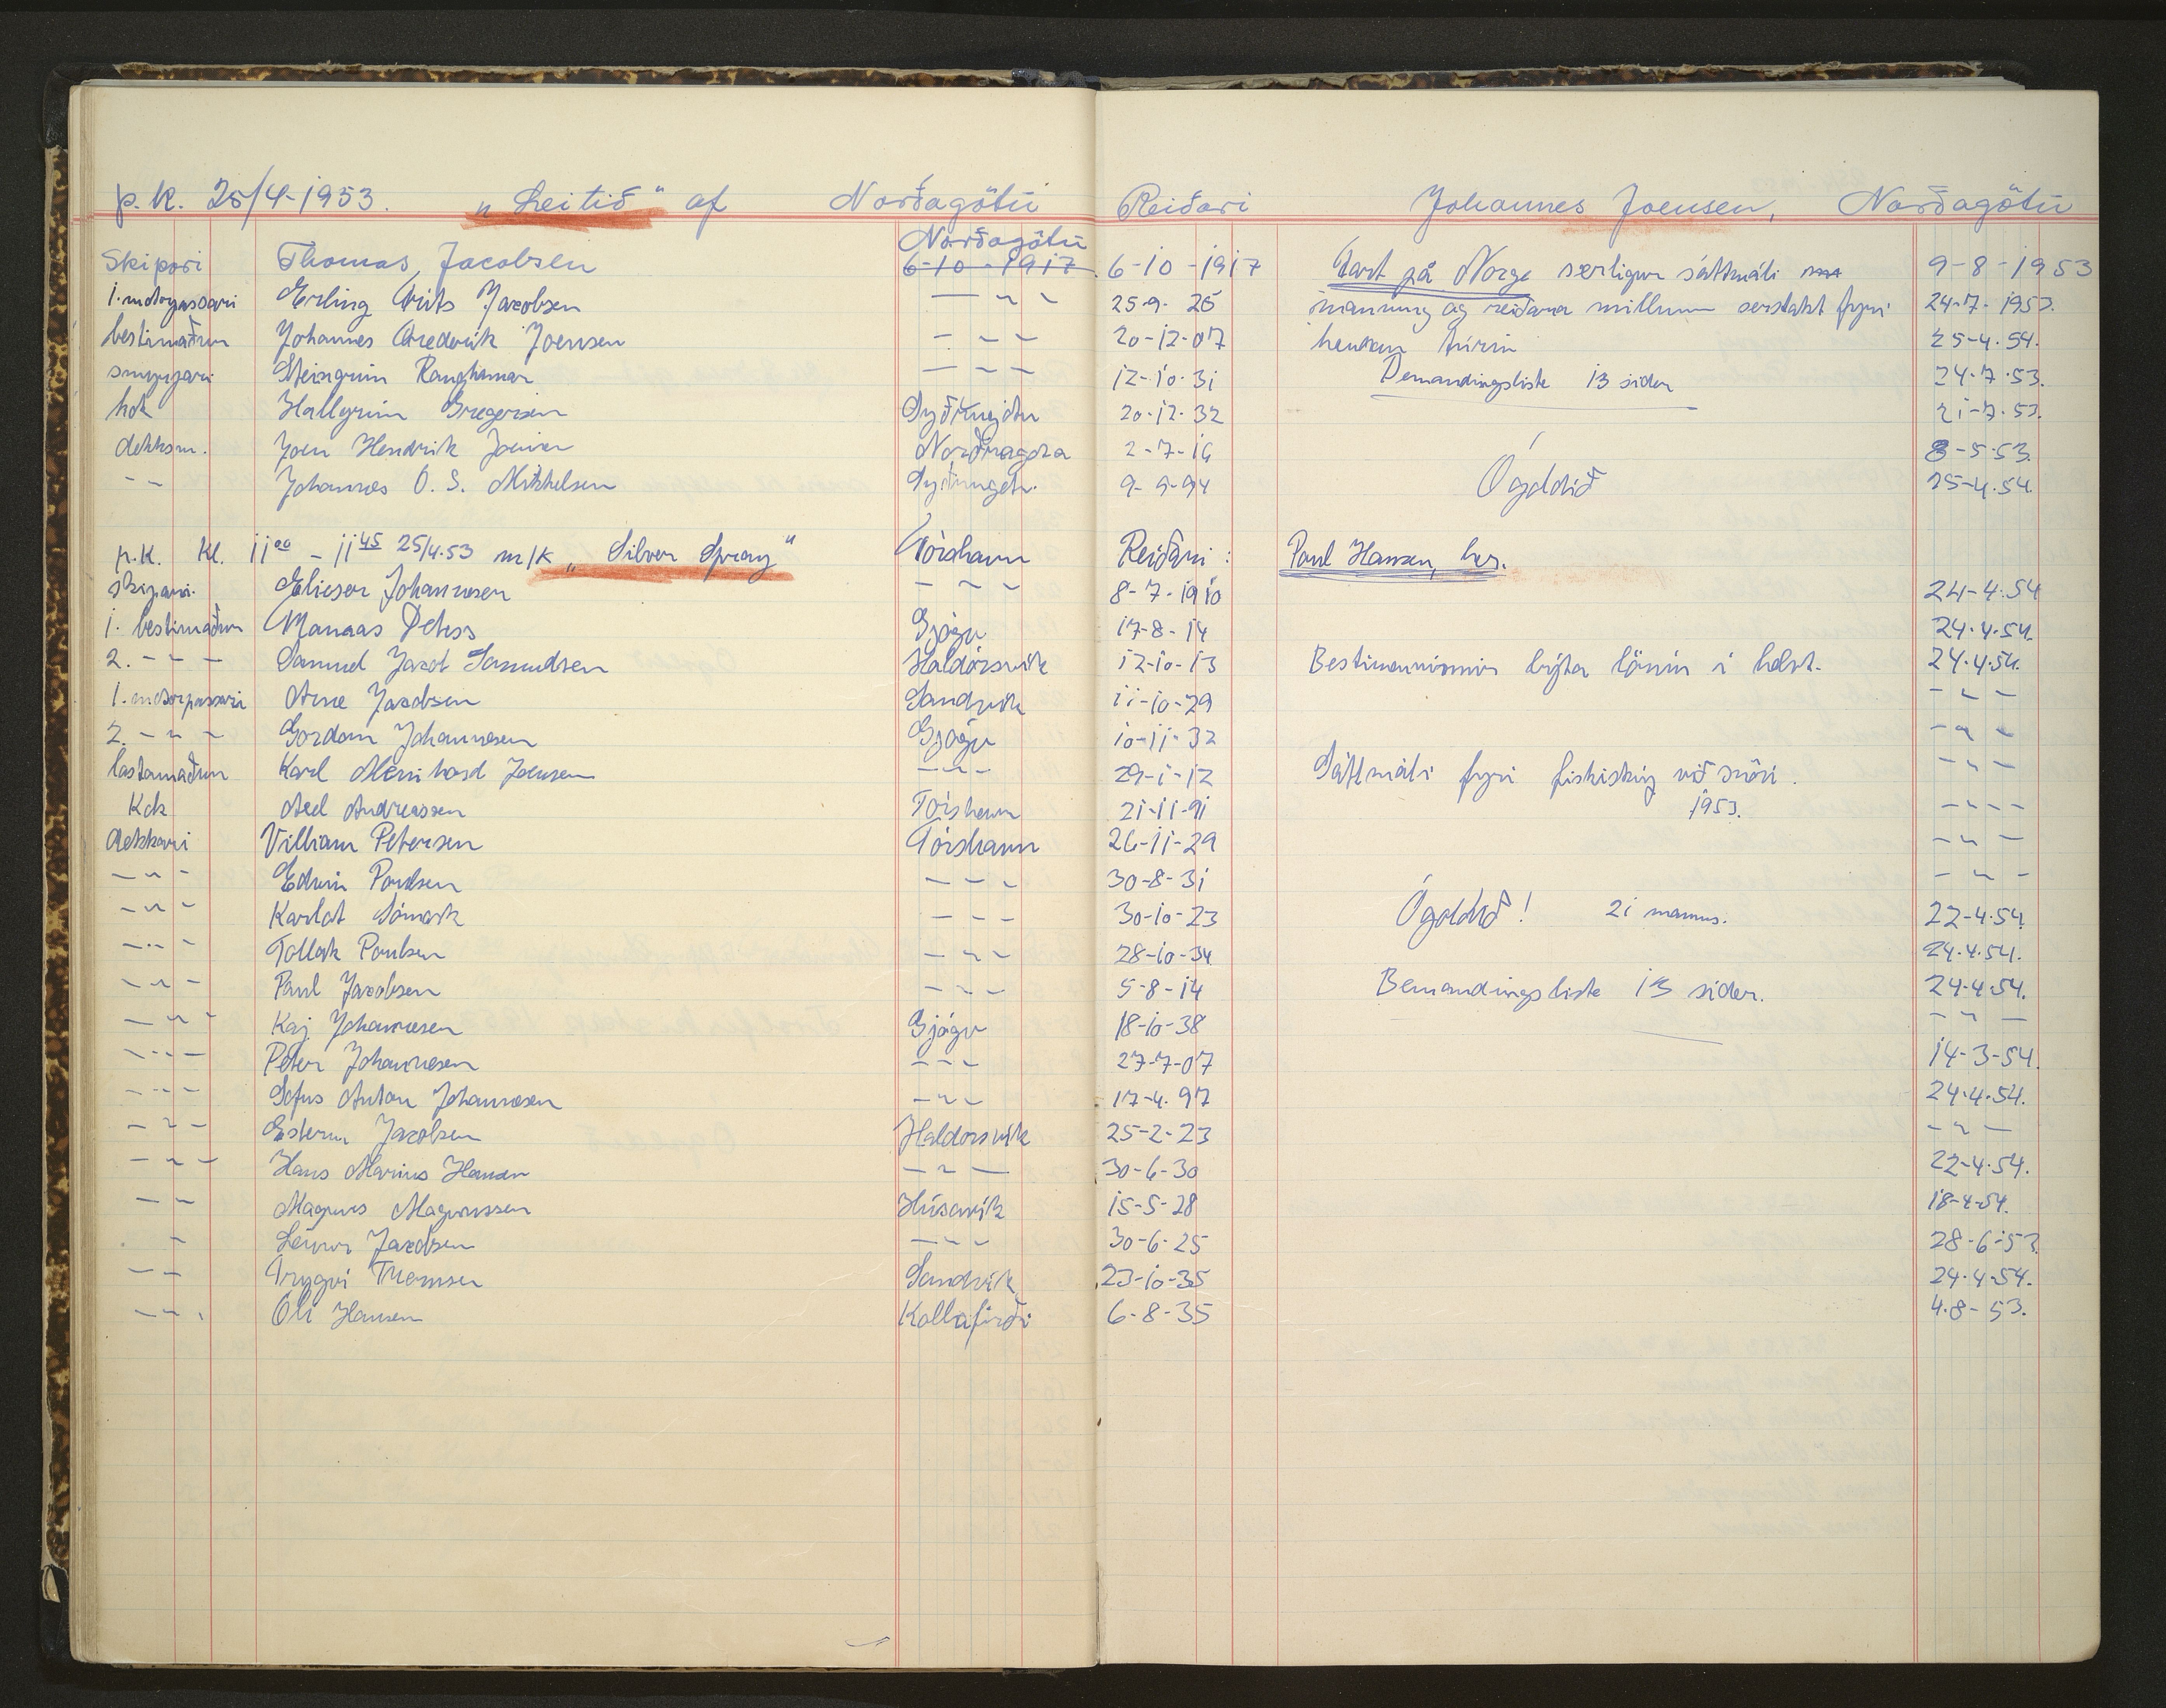 p.k. 25/4-1953. „Leitið" af Norðagøtu Reiðari Johannes Joensen, Norðagøtu
Norðagøtu
Skipari Thomas Jacobsen 6-10-1917 6-10-1917 Fart på Norge serligur sáttmáli 9-8-1953
1. motorpassari Erling Frits Jacobsen — ~ ~ 25-9-25 manning og reiðara millum serstakt fyri 24-7-1953.
bestimaður Johannes Frederik Joensen - ~ ~ 20-12-07 hendan túrin 25-4-54.
smyrjari Steingrim Ranghamar — ~ ~ 12-10-31 Bemandingsliste 13 sider 24-7-53.
kok Hallgrim Gregersen 20-12-32 21-7-53.
dekksm. Joen Hendrik Joensen Norðragøta 2-7-16 8-5-53.
- - Johannes O. S. Mikkelsen 9-9-94 Ógoldið 25-4-54.
p.k. Kl. 11 00 - 11 45 25/4.53 m/k „Silver Spray" Tórshavn Reiðari: Paul Hansen, her.
skipari. Elieser Johannesen - ~ ~ 8-7-1910 24-4-54
1. bestimaður Manaas Peters Gjógv 17-8-14 24-4-54.
2. - ~ - Samuel Jacob Samuelsen Haldórsvík 12-10-13 Bestimenninir býta lónin í helvt. 24-4-54.
1. motorpassari Arne Jacobsen Sandvík 11-10-29 - ~ -
2. - ~ - Gordon Johannesen Gjógv 10-11-32 - ~ -
lastamaður Karl Meinhard Joensen - ~ - 29-1-12 Sáttmáli fyri fiskiskip við snøri. - ~ -
Kok Axel Andreassen Tórshavn 21-11-91 1953. - ~ - -
dekkari Villiam Petersen Tórshavn 26-11-29 - ~ -
- ~ - Edvin Poulsen - - - 30-8-31 - ~ -
- ~ - Karlot Sómark - - - 30-10-23 Ógoldið! 21 manns. 22-4-54.
- ~ - Tollak Poulsen - ~ - 28-10-34 24-4-54.
- ~ - Paul Jacobsen - ~ - 5-8-14 Bemandingsliste 13 sider. 24-4-54.
- ~ - Kaj Johannesen Gjógv 18-10-38 - ~ -
- ~ - Peter Johannesen - - - 27-7-07 14-3-54.
- ~ - Sofus Anton Johannesen - ~ - 17-4-97 24-4-54.
- ~ - Jacobsen Haldorsvík 25-2-23 - ~ -
- ~ - Hans Marius Hansen - ~ - 30-6-30 22-4-54.
- - Magnus Magnussen Húsavík 15-5-28 18-4-54.
- Jacobsen - ~ - 30-6-25 28-6-53.
- - Tryggvi Thomsen Sandvík 23-10-35 24-4-54.
- ~ - Óli Hansen Kollafirði 6-8-35 4-8-53.